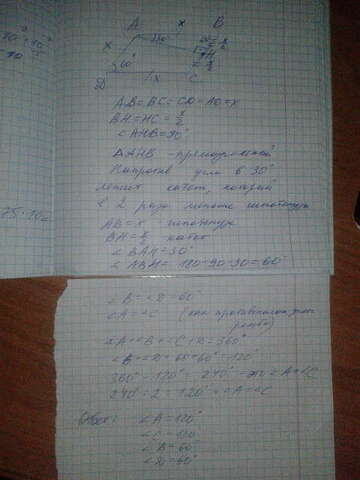 A x B
x 30° x/2
H
60° x/2
D x C
AB=BC=CD=AD=x
BH=HC=x/2
∠AHB=90°
△AHB - прямоугольный
Напротив угла в 30°
лежит катет, который
в 2 раза меньше гипотенузы
AB=x гипотенуза
BH=x/2 катет
∠BAH=30°
∠ABH= 180-90-30=60°
∠B=∠D=60°
∠A=∠C (как противополож. углы
ромба)
∠A+∠B+∠C+∠D=360°
∠B+∠D=60+60=120°
360°-120°=240° - это ∠A+∠C
240°:2=120°=∠A=∠C
Ответ: ∠A=120°
∠C=120°
∠B=60°
∠D=60°